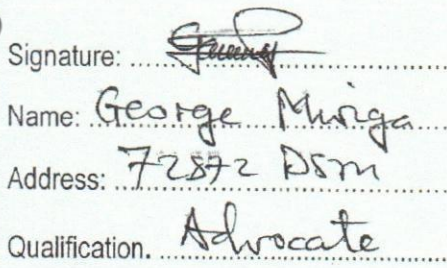 Signature:
Name: George Mwiga
Address: 72872 DSM
Qualification. Advocate